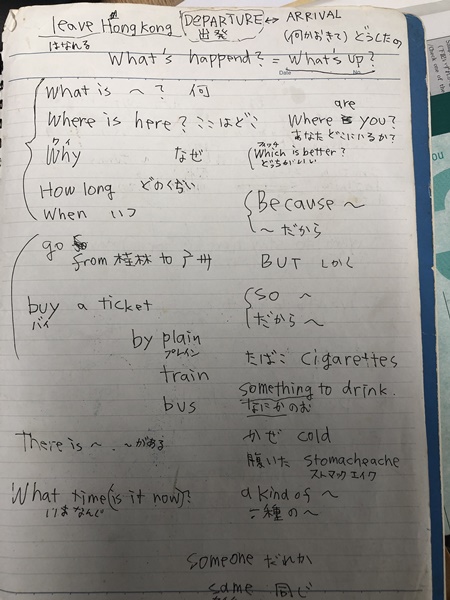 leave Hongkong DEPARTURE ↔ ARRIVAL
はなれる 出発 (何かおきて) どうしたの
What's happend? = What's up?
Date No.
What is ～? 何
Where is here? ここはどこ Where are you?
あなたどこにいるか?
Why なぜ Which is better?
ワイ どっちがいい
How long どのくらい
When いつ Because ～
～だから
go
from 桂林 to 广州 BUT しかし
buy a ticket so ～
バイ だから～
by plain
プレイン
train たばこ cigarettes
something to drink.
bus なにかのむ
There is ～. ～がある かぜ cold
腹いた stomacheache
ストマックエイク
What time (is it now)? a kind of ～
いまなんじ 一種の～
someone だれか
same 同じ